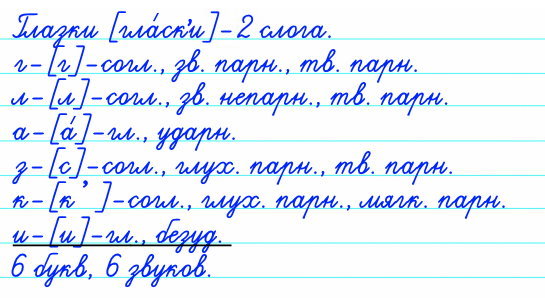 Глазки [гла́ск'и]-2 слога.
г-[г]-согл., зв. парн., тв. парн.
л-[л]-согл., зв. непарн., тв. парн.
а-[а́]-гл., ударн.
з-[с]-согл., глух. парн., тв. парн.
к-[к']-согл., глух. парн., мягк. парн.
и-[и]-гл., безуд.
6 букв, 6 звуков.